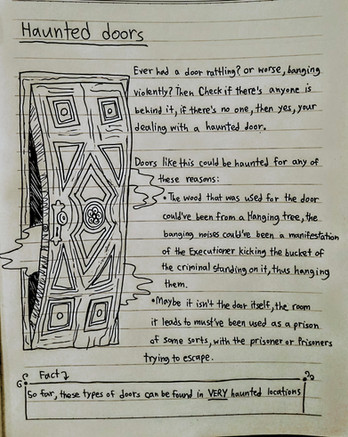 Haunted doors
Ever had a door rattling? or worse, banging
violently? Then Check if there's anyone is
behind it, if there's no one, then yes, your
dealing with a haunted door.
Doors like this could be haunted for any of
these reasons:
• The wood that was used for the door
could've been from a Hanging tree, the
banging noises could've been a manifestation
of the Executioner kicking the bucket of
the criminal standing on it, thus hanging
them.
• Maybe it isn't the door itself, the room
it leads to must've been used as a prison
of some sorts, with the prisoner or prisoners
trying to escape.
Fact
So far, these types of doors can be found in VERY haunted locations